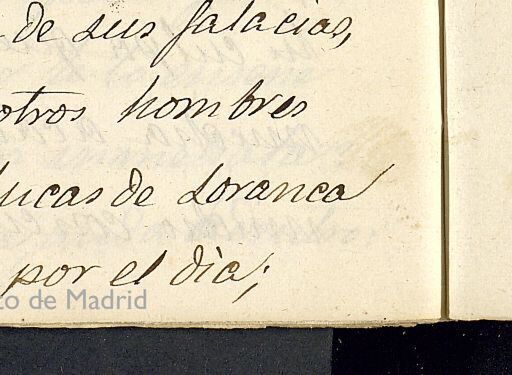 de sus falacias,
otros hombres
Lucas de Loranca
por el dia;
to de Madrid